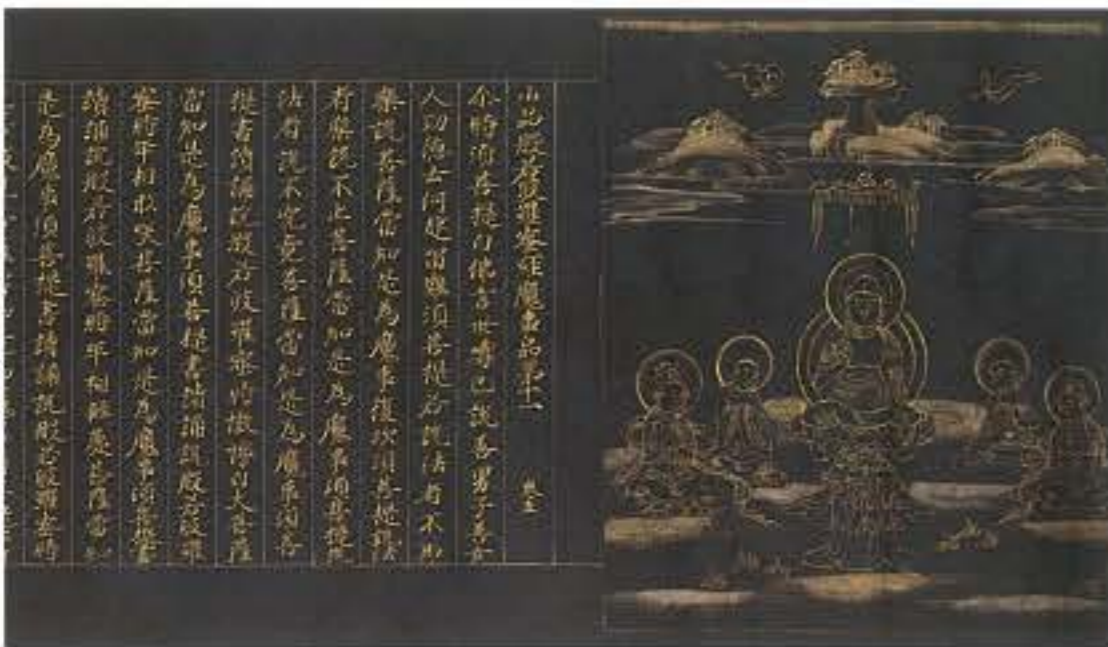 小品般若波羅蜜經魔事品第十一
尒時須菩提白佛言世尊已說善男子善女
人功德云何起留難須菩提若說法者不即
樂說菩薩當知是為魔事復次須菩提說法
者樂說不止菩薩當知是為魔事須菩提說
法者說不究竟菩薩當知是為魔事須菩
提書讀誦說般若波羅蜜時傲慢自大菩薩
當知是為魔事須菩提書讀誦說般若波羅
蜜時相笑菩薩當知是為魔事須菩提書
讀誦說般若波羅蜜時相輕蔑菩薩當知
是為魔事須菩提書讀誦說般若波羅蜜時